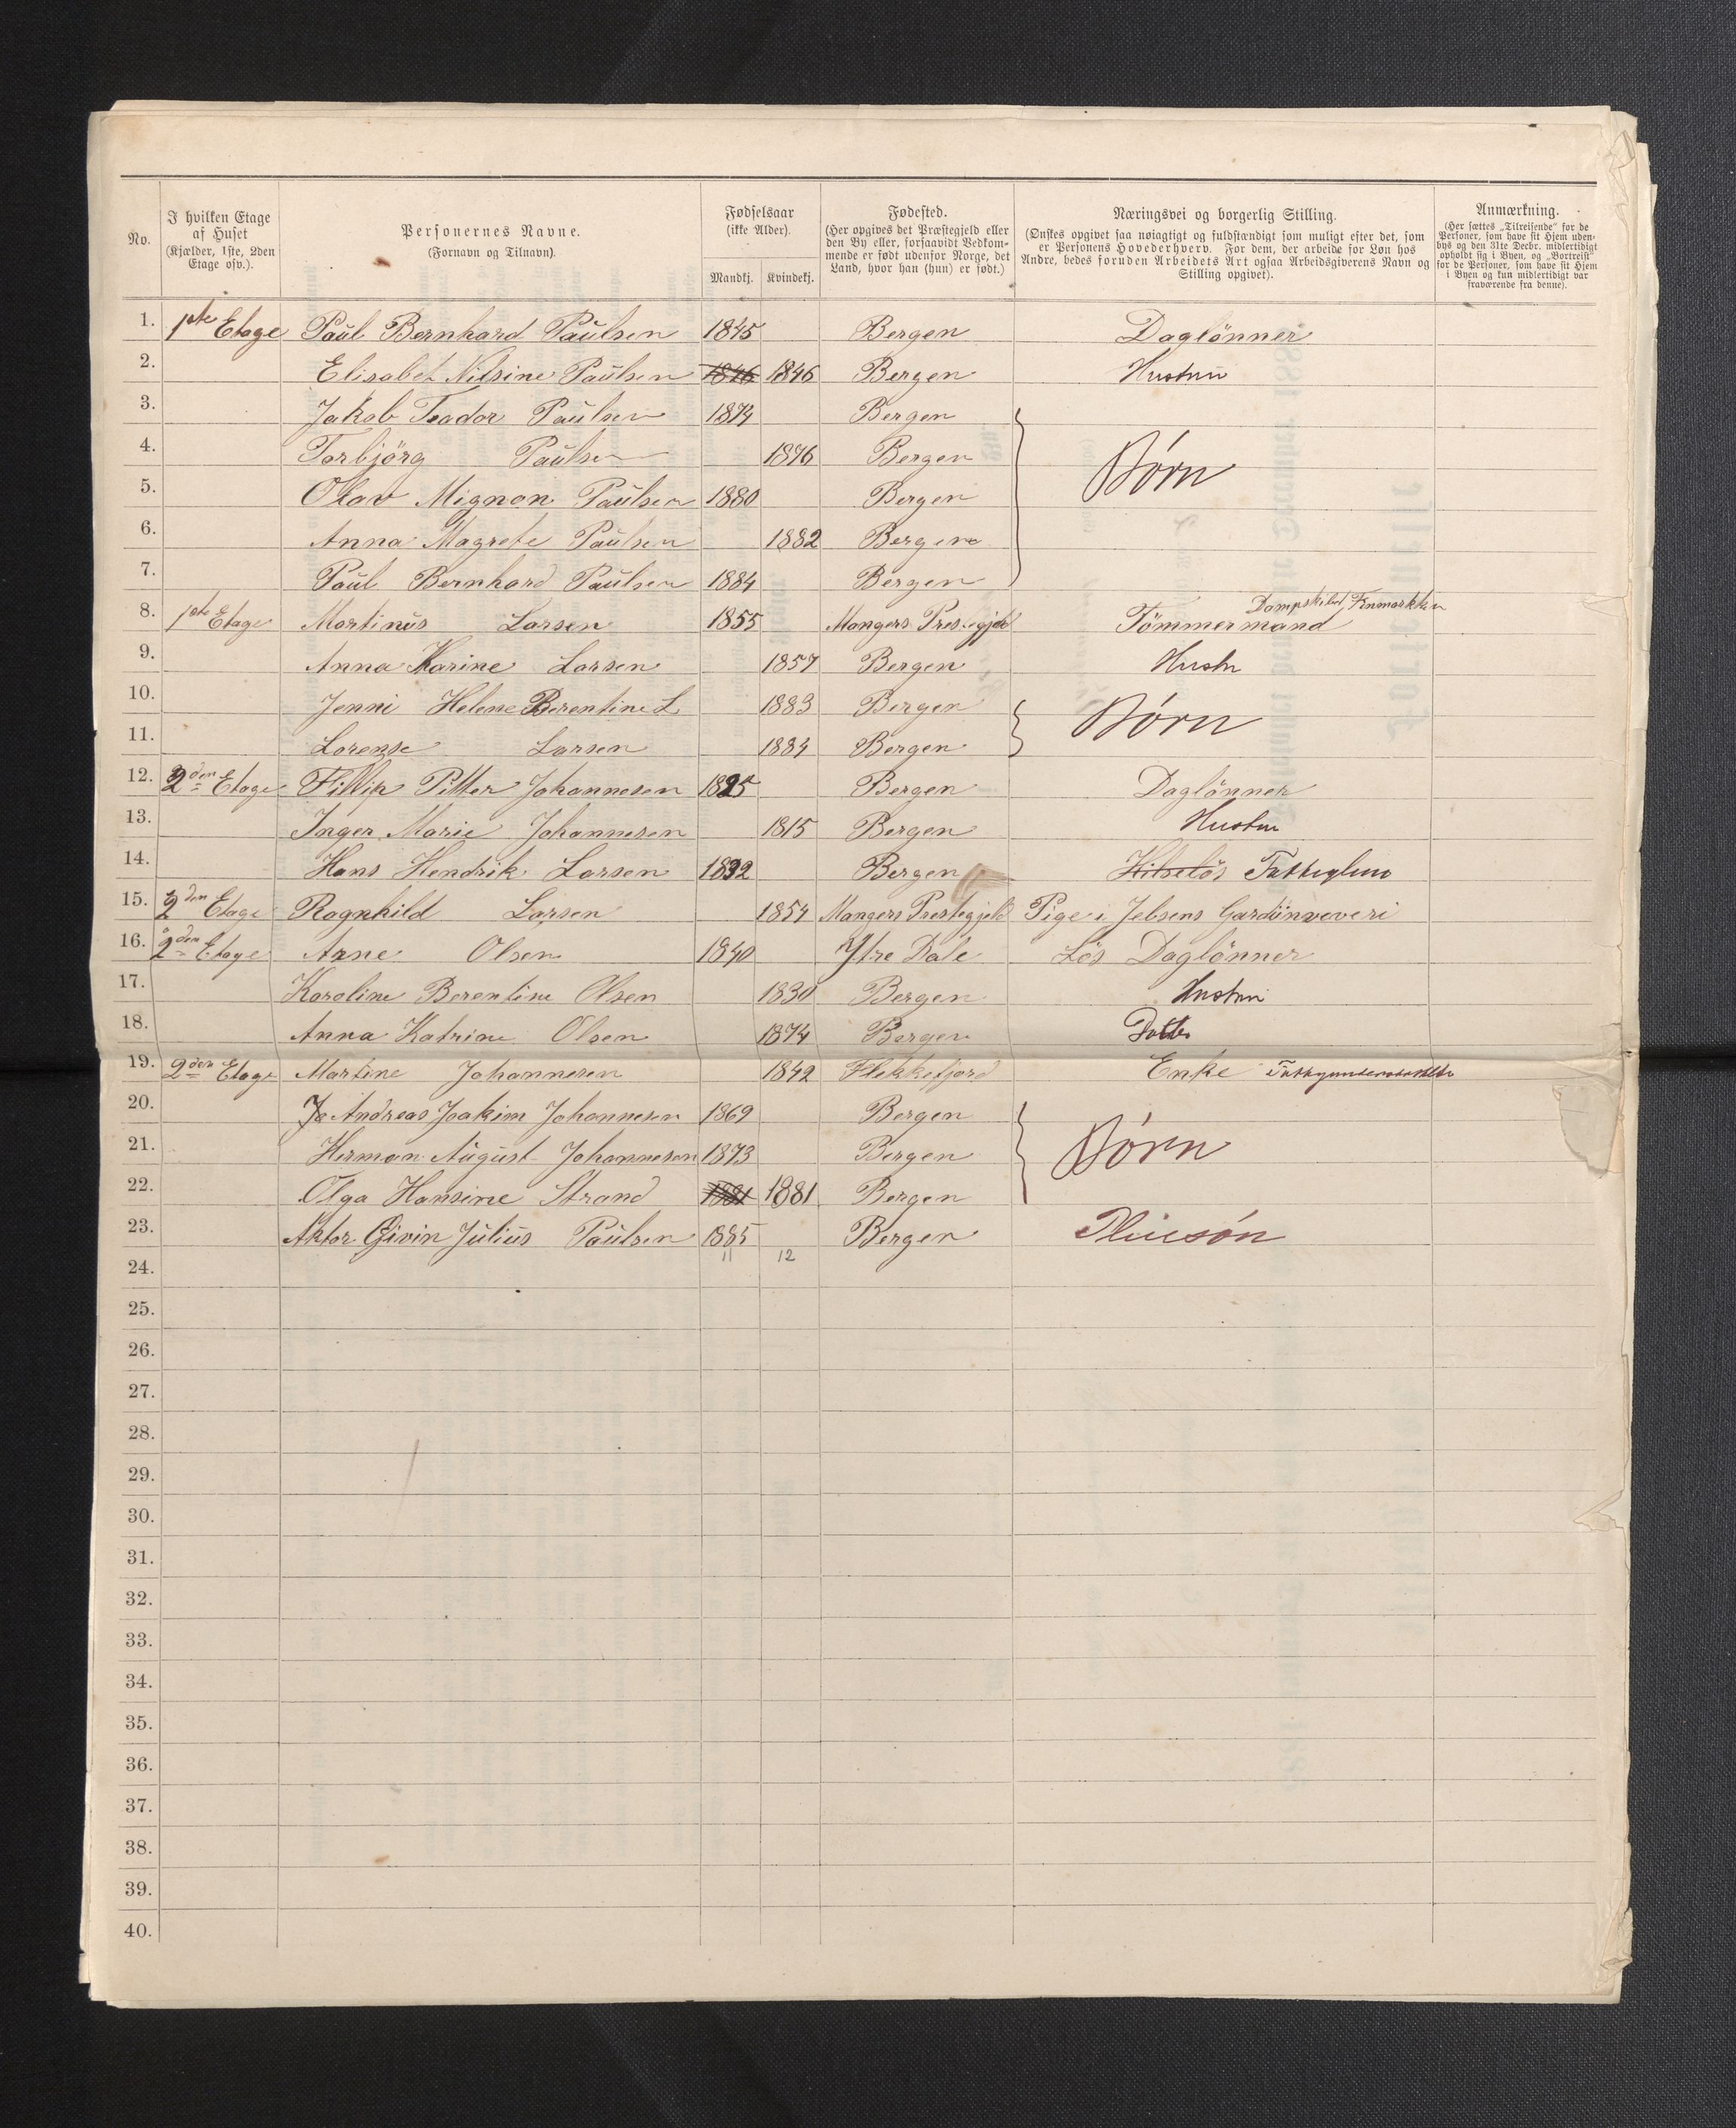 No.
I hvilken Etage af Huset (Kjælder, 1ste, 2den Etage osv.).
Personernes Navne. (Fornavn og Tilnavn).
Fødselsaar (ikke Alder).
Mandkj. Kvindekj.
Fødested. (Her opgives det Præstegjeld eller den By eller, forsaavidt Vedkommende er født udenfor Norge, det Land, hvor han (hun) er født.)
Næringsvei og borgerlig Stilling. (Ønskes opgivet saa nøiagtigt og fuldstændigt som muligt efter det, som er Personens Hovederhverv. For dem, der arbeide for Løn hos Andre, bedes foruden Arbeidets Art ogsaa Arbeidsgiverens Navn og Stilling opgivet).
Anmærkning. (Her sættes „Tilreisende“ for de Personer, som have sit Hjem udenbys og den 31te Decbr. midlertidigt opholdt sig i Byen, og „Bortreist“ for de Personer, som have sit Hjem i Byen og kun midlertidigt var fraværende fra denne).
1. 1ste Etage Paul Bernhard Paulsen 1845 Bergen Daglönner
2. Elisabet Nilsine Paulsen 1846 1846 Bergen Hustru
3. Jakob Teador Paulsen 1874 Bergen
4. Torbjörg Paulsen 1876 Bergen Børn
5. Olav Mignon Paulsen 1880 Bergen
6. Anna Magrete Paulsen 1882 Bergen
7. Paul Bernhard Paulsen 1884 Bergen
8. 1ste Etage Martinus Larsen 1855 Mangers Prestegjeld Tömmermand Dampskibet Finmarkken
9. Anna Karine Larsen 1857 Bergen Hustr
10. Jenni Helene Berentine L 1883 Bergen Børn
11. Lorense Larsen 1884 Bergen
12. 2den Etage Fillip Pitter Johannesen 1825 Bergen Daglönner
13. Inger Marie Johannesen 1815 Bergen Hustru
14. Hans Hendrik Larsen 1832 Bergen Fattiglem
15. 2den Etage Ragnhild Larsen 1854 Mangers Prestegjeld Pige i Jebsens Gardinveveri
16. 2den Etage Arne Olsen 1840 Ytre Dale Lös Daglönner
17. Karoline Berentine Olsen 1830 Bergen Hustru
18. Anna Katrine Olsen 1874 Bergen Datter
19. 2den Etage Martine Johannesen 1842 Flekkefjord Enke
20. Andreas Joakim Johannesen 1869 Bergen
21. Herman August Johannesen 1873 Bergen Børn
22. Olga Hansine Strand 1881 1881 Bergen
23. Aktor Eivin Julius Paulsen 1885 Bergen Pleiesøn
11 12
24.
25.
26.
27.
28.
29.
30.
31.
32.
33.
34.
35.
36.
37.
38.
39.
40.